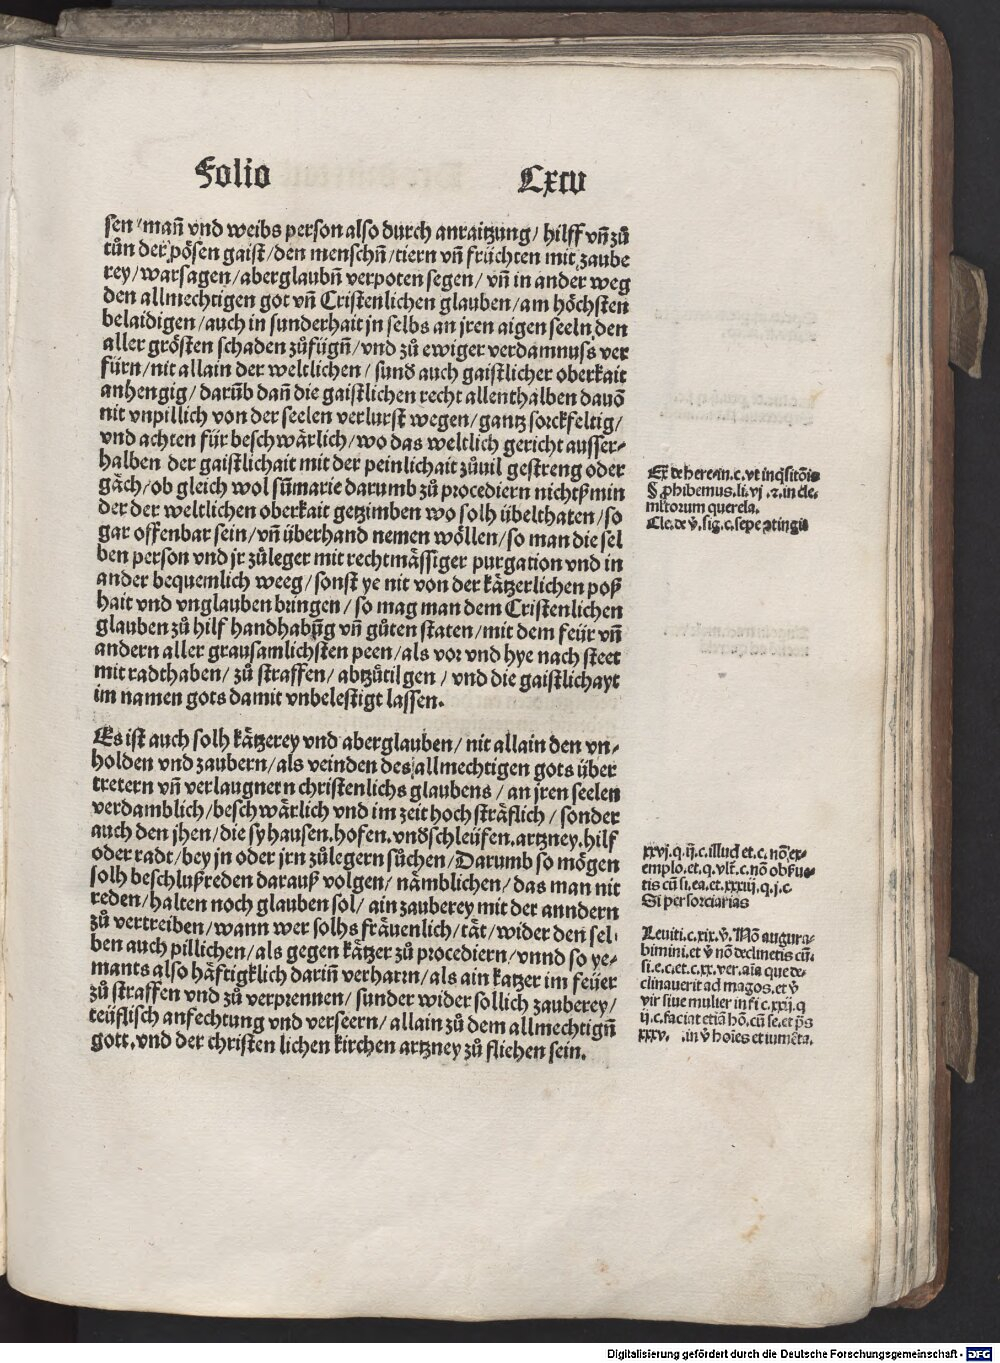 Folio Lxcv
sen/ mañ vnd weibs person also durch anraitzung/ hilff vñ zů
tůn der pösen gaist/ den menschñ/ tiern vñ früchten mit zaube
rey/ warsagen/ aberglaubñ verpoten segen/ vñ in ander weg
den allmechtigen got vñ Cristenlichen glauben/ am höchsten
belaidigen/ auch in sunderhait jn selbs an jren aigen seeln den
aller grösten schaden zůfügñ/ vnd zů ewiger verdamnuss ver
fürn/ nit allain der weltlichen/ sund auch gaistlicher oberkait
anhengig/ darũb dañ die gaistlichen recht allenthalben dauõ
nit vnpillich von der seelen verlurst wegen/ gantz sorckfeltig/
vnd achten für beschwärlich/ wo das weltlich gericht ausser-
halben der gaistlichait mit der peinlichait zůuil gestreng oder
gäch/ ob gleich wol sũmarie darumb zů procediern nichtß min
der der weltlichen oberkait getzimben wo solh übelthaten/ so
gar offenbar sein/ vñ überhand nemen wöllen/ so man die sel
ben person vnd jr zůleger mit rechtmässiger purgation vnd in
ander bequemlich weeg/ sonst ye nit von der kätzerlichen poß
hait vnd vnglauben bringen/ so mag man dem Cristenlichen
glauben zů hilf handhabũg vñ gůten staten/ mit dem feür vñ
andern aller grausamlichsten peen/ als vor vnd hye nach steet
mit radthaben/ zů straffen/ abtzůtilgen/ vnd die gaistlichayt
im namen gots damit vnbelestigt lassen.
Ex de here. in. c. vt inq̃sitõis
§ ꝓhibemus. li. vj. ⁊. in cle.
querela.
Es ist auch solh kätzerey vnd aberglauben/ nit allain den vn-
holden vnd zaubern/ als veinden des allmechtigen gots über
tretern vñ verlaugnern christenlichs glaubens/ an jren seelen
verdamblich/ beschwärlich vnd im zeit hoch sträflich/ sonder
auch den jhen/ die sy hausen. hofen. vnd schleüfen. artzney. hilf
oder radt/ bey jn oder jrn zůlegern sůchen/ Darumb so mögen
solh beschlußreden darauß volgen/ nämblichen/ das man nit
reden/ halten noch glauben sol/ ain zauberey mit der anndern
zů vertreiben/ wann wer solhs fräuenlich/ tät/ wider den sel-
ben auch pillichen/ als gegen kätzer zů procediern/ vnnd so ye-
mants also häftigklich dariñ verharrn/ als ain katzer im feüer
zů straffen vnd zů verprennen/ sunder wider sollich zauberey/
teüflisch anfechtung vnd verseern/ allain zů dem allmechtigñ
gott. vnd der christen lichen kirchen artzney zů fliehen sein.
xxvj. q. ij. c. illud et. c. nõ ex-
emplo. et. q. vlt. c. nõ
tis cũ si. ea. et. xxxiij. q. j. c.
Si per sorciarias
Leuiti. c. xix. v̊. Nõ augura-
bimini. et v̊ nõ declinetis cũ.
si. e. c. et. c. xx. ver. aĩa que de-
clinauerit ad magos. et v̊
vir siue mulier in fi c. xxij. q
ij. c. faciat etiã hõ. cũ se. et
xxxv. .in v̊ hoĩes et iumẽta.
Digitalisierung gefördert durch die Deutsche Forschungsgemeinschaft - DFG